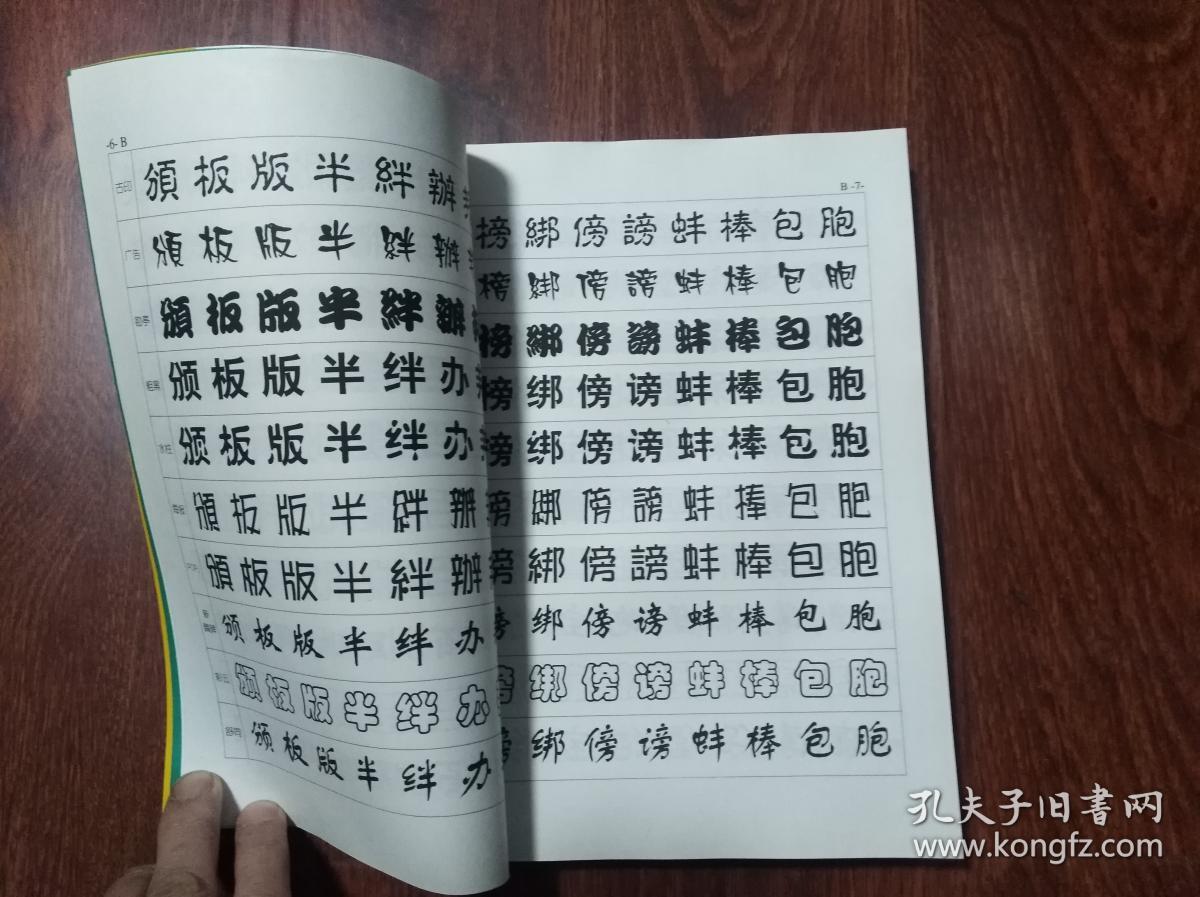 -6- B
古印 頒 板 版 半 絆 辦
广告 頒 板 版 半 絆 辦
勘亭 頒 板 版 半 絆 辦
粗黑 颁 板 版 半 绊 办
水柱 颁 板 版 半 绊 办
頒 板 版 半 絆 辦
POP 頒 板 版 半 絆 辦
颁 板 版 半 绊 办
颁 板 版 半 绊 办
颁 板 版 半 绊 办
B -7-
榜 綁 傍 謗 蚌 棒 包 胞
榜 綁 傍 謗 蚌 棒 包 胞
榜 綁 傍 謗 蚌 棒 包 胞
榜 绑 傍 谤 蚌 棒 包 胞
榜 绑 傍 谤 蚌 棒 包 胞
榜 綁 傍 謗 蚌 棒 包 胞
榜 綁 傍 謗 蚌 棒 包 胞
榜 绑 傍 谤 蚌 棒 包 胞
榜 绑 傍 谤 蚌 棒 包 胞
榜 绑 傍 谤 蚌 棒 包 胞
孔夫子旧书网
www.kongfz.com